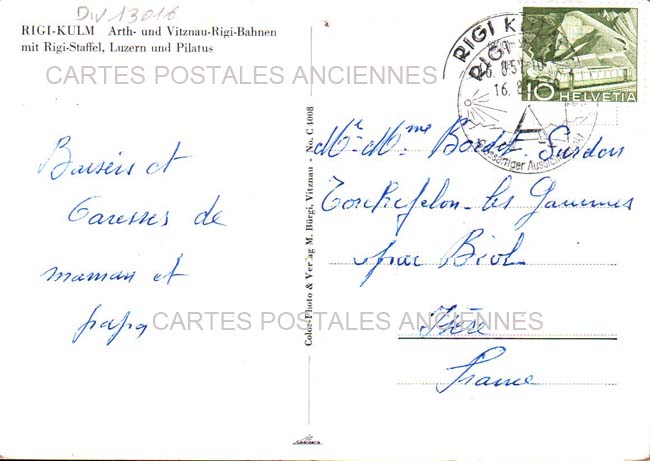 Div 13016
RIGI-KULM Arth- und Vitznau-Rigi-Bahnen
mit Rigi-Staffel, Luzern und Pilatus
CARTES POSTALES ANCIENNES
RIGI KULM
RIGI
16. 8.
10 HELVETIA
Aussicht
Baisers et
Caresses de
maman et
papa
Color-Photo & Verlag M. Bürgi, Vitznau - No. C 4008
Mr Mme Bordet-Surdon
Torchefelon-les Gammes
par Biol
Isère
France
CARTES POSTALES ANCIENNES